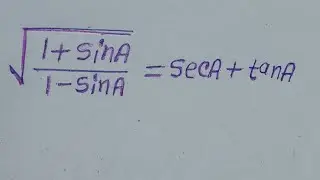 √((1 + sinA)/(1 - sinA)) = secA + tanA